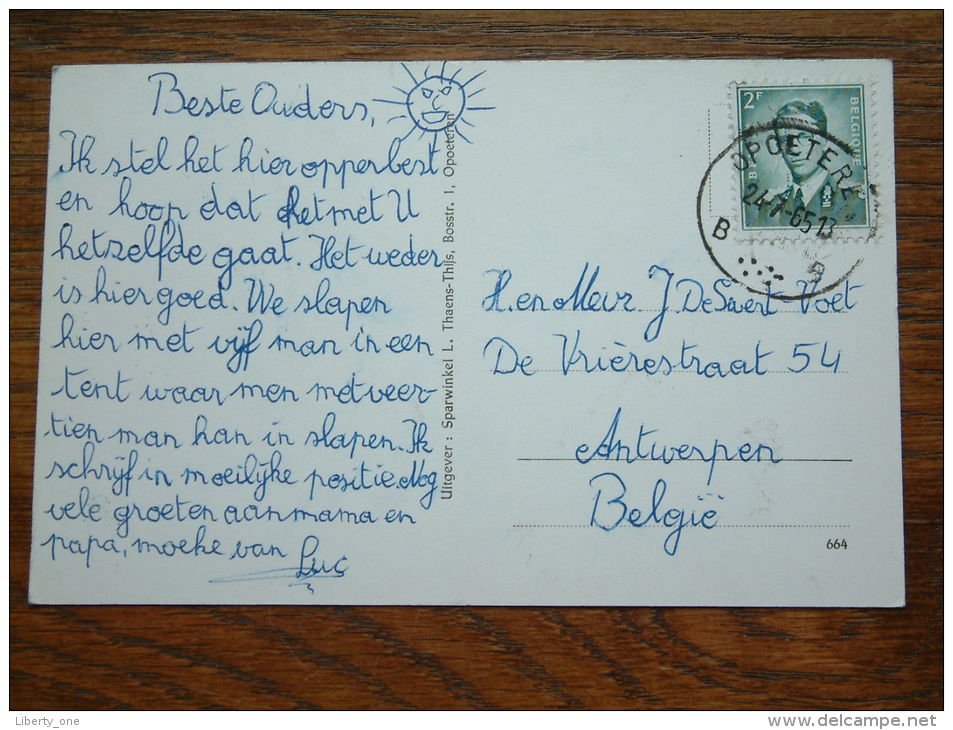 Beste Ouders,
Ik stel het hier opperbest
en hoop dat het met U
hetzelfde gaat. Het weder
is hier goed. We slapen
hier met vijf man in een
tent waar men met veer-
tien man kan in slapen. Ik
schrijf in moeilijke positie. Nog
vele groeten aan mama en
papa, moeke van
Luc
Uitgever: Sparwinkel L. Thaens-Thijs, Bosstr. 1, Opoeteren
2F
BELGIQUE
OPOETERE
24-7-65 13
B
H. en Mevr J. De Swert-Voet
De Vrièrestraat 54
Antwerpen
België
664
Liberty_one
delcampe.net